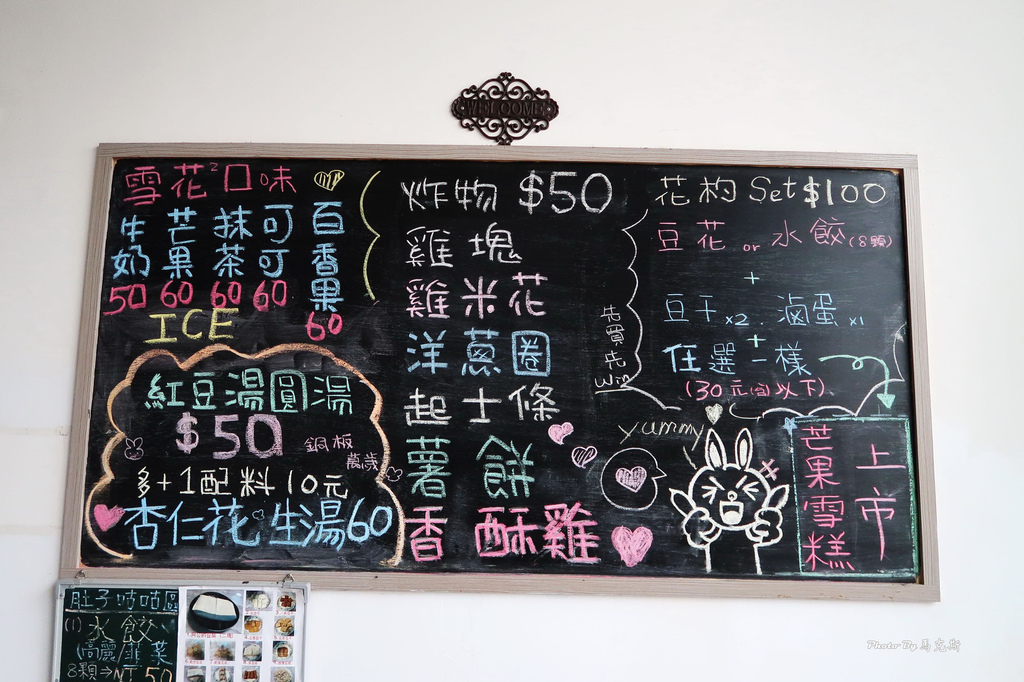 WELCOME
雪花²口味
牛奶 50
芒果 60
抹茶 60
可可 60
百香果 60
ICE
紅豆湯圓湯
$50
銅板
萬歲
多+1配料10元
杏仁花生湯60
炸物 $50
雞塊
雞米花
洋蔥圈
起士條
薯餅
香酥雞
先買先
Win
花杓 Set $100
豆花 or 水餃(8顆)
+
豆干x2.滷蛋x1
+
任選一樣
(30元(含)以下)
yammy
上市
芒果雪糕
肚子咕咕區
(1) 水餃
(高麗韭菜
8顆→NT 50
Photo By 馬克斯